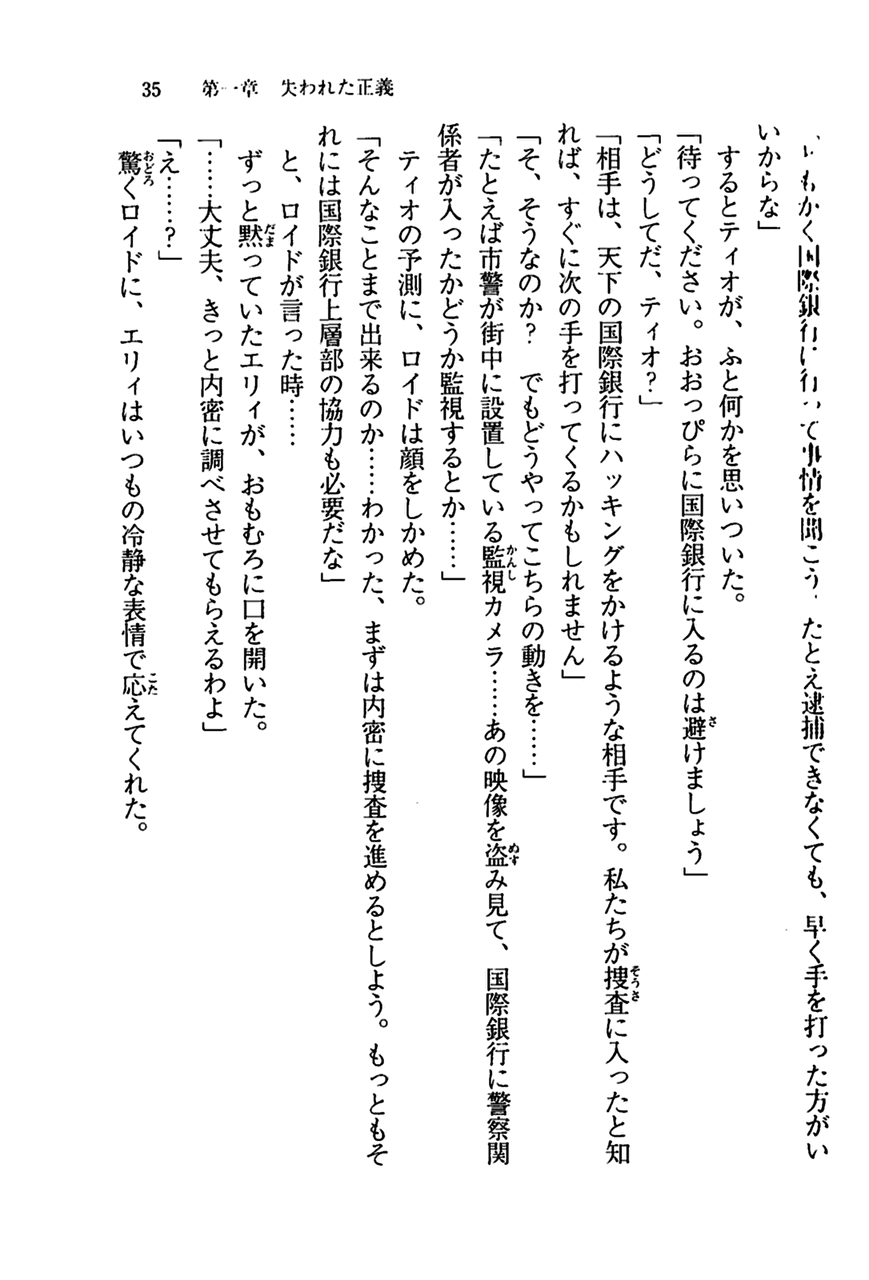 35　第一章　失われた正義
ともかく国際銀行に行って事情を聞こう。たとえ逮捕できなくても、早く手を打った方がい
いからな」
するとティオが、ふと何かを思いついた。
「待ってください。おおっぴらに国際銀行に入るのは避けましょう」
「どうしてだ、ティオ？」
「相手は、天下の国際銀行にハッキングをかけるような相手です。私たちが捜査に入ったと知
れば、すぐに次の手を打ってくるかもしれません」
「そ、そうなのか？　でもどうやってこちらの動きを……」
「たとえば市警が街中に設置している監視カメラ……あの映像を盗み見て、国際銀行に警察関
係者が入ったかどうか監視するとか……」
ティオの予測に、ロイドは顔をしかめた。
「そんなことまで出来るのか……わかった、まずは内密に捜査を進めるとしよう。もっともそ
れには国際銀行上層部の協力も必要だな」
と、ロイドが言った時……
ずっと黙っていたエリィが、おもむろに口を開いた。
「……大丈夫、きっと内密に調べさせてもらえるわよ」
「え……？」
驚くロイドに、エリィはいつもの冷静な表情で応えてくれた。